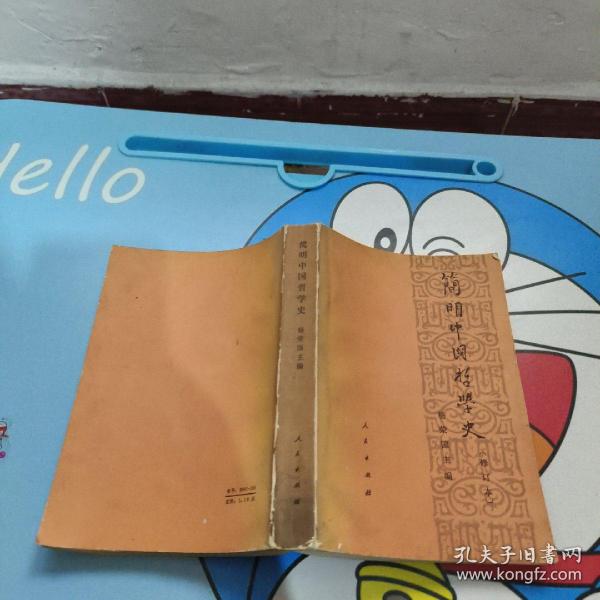 Hello
簡明中国哲學史
(修订本)
杨荣国主编
人民出版社
简明中国哲学史
杨荣国主编
人民出版社
孔夫子旧书网
www.kongfz.com